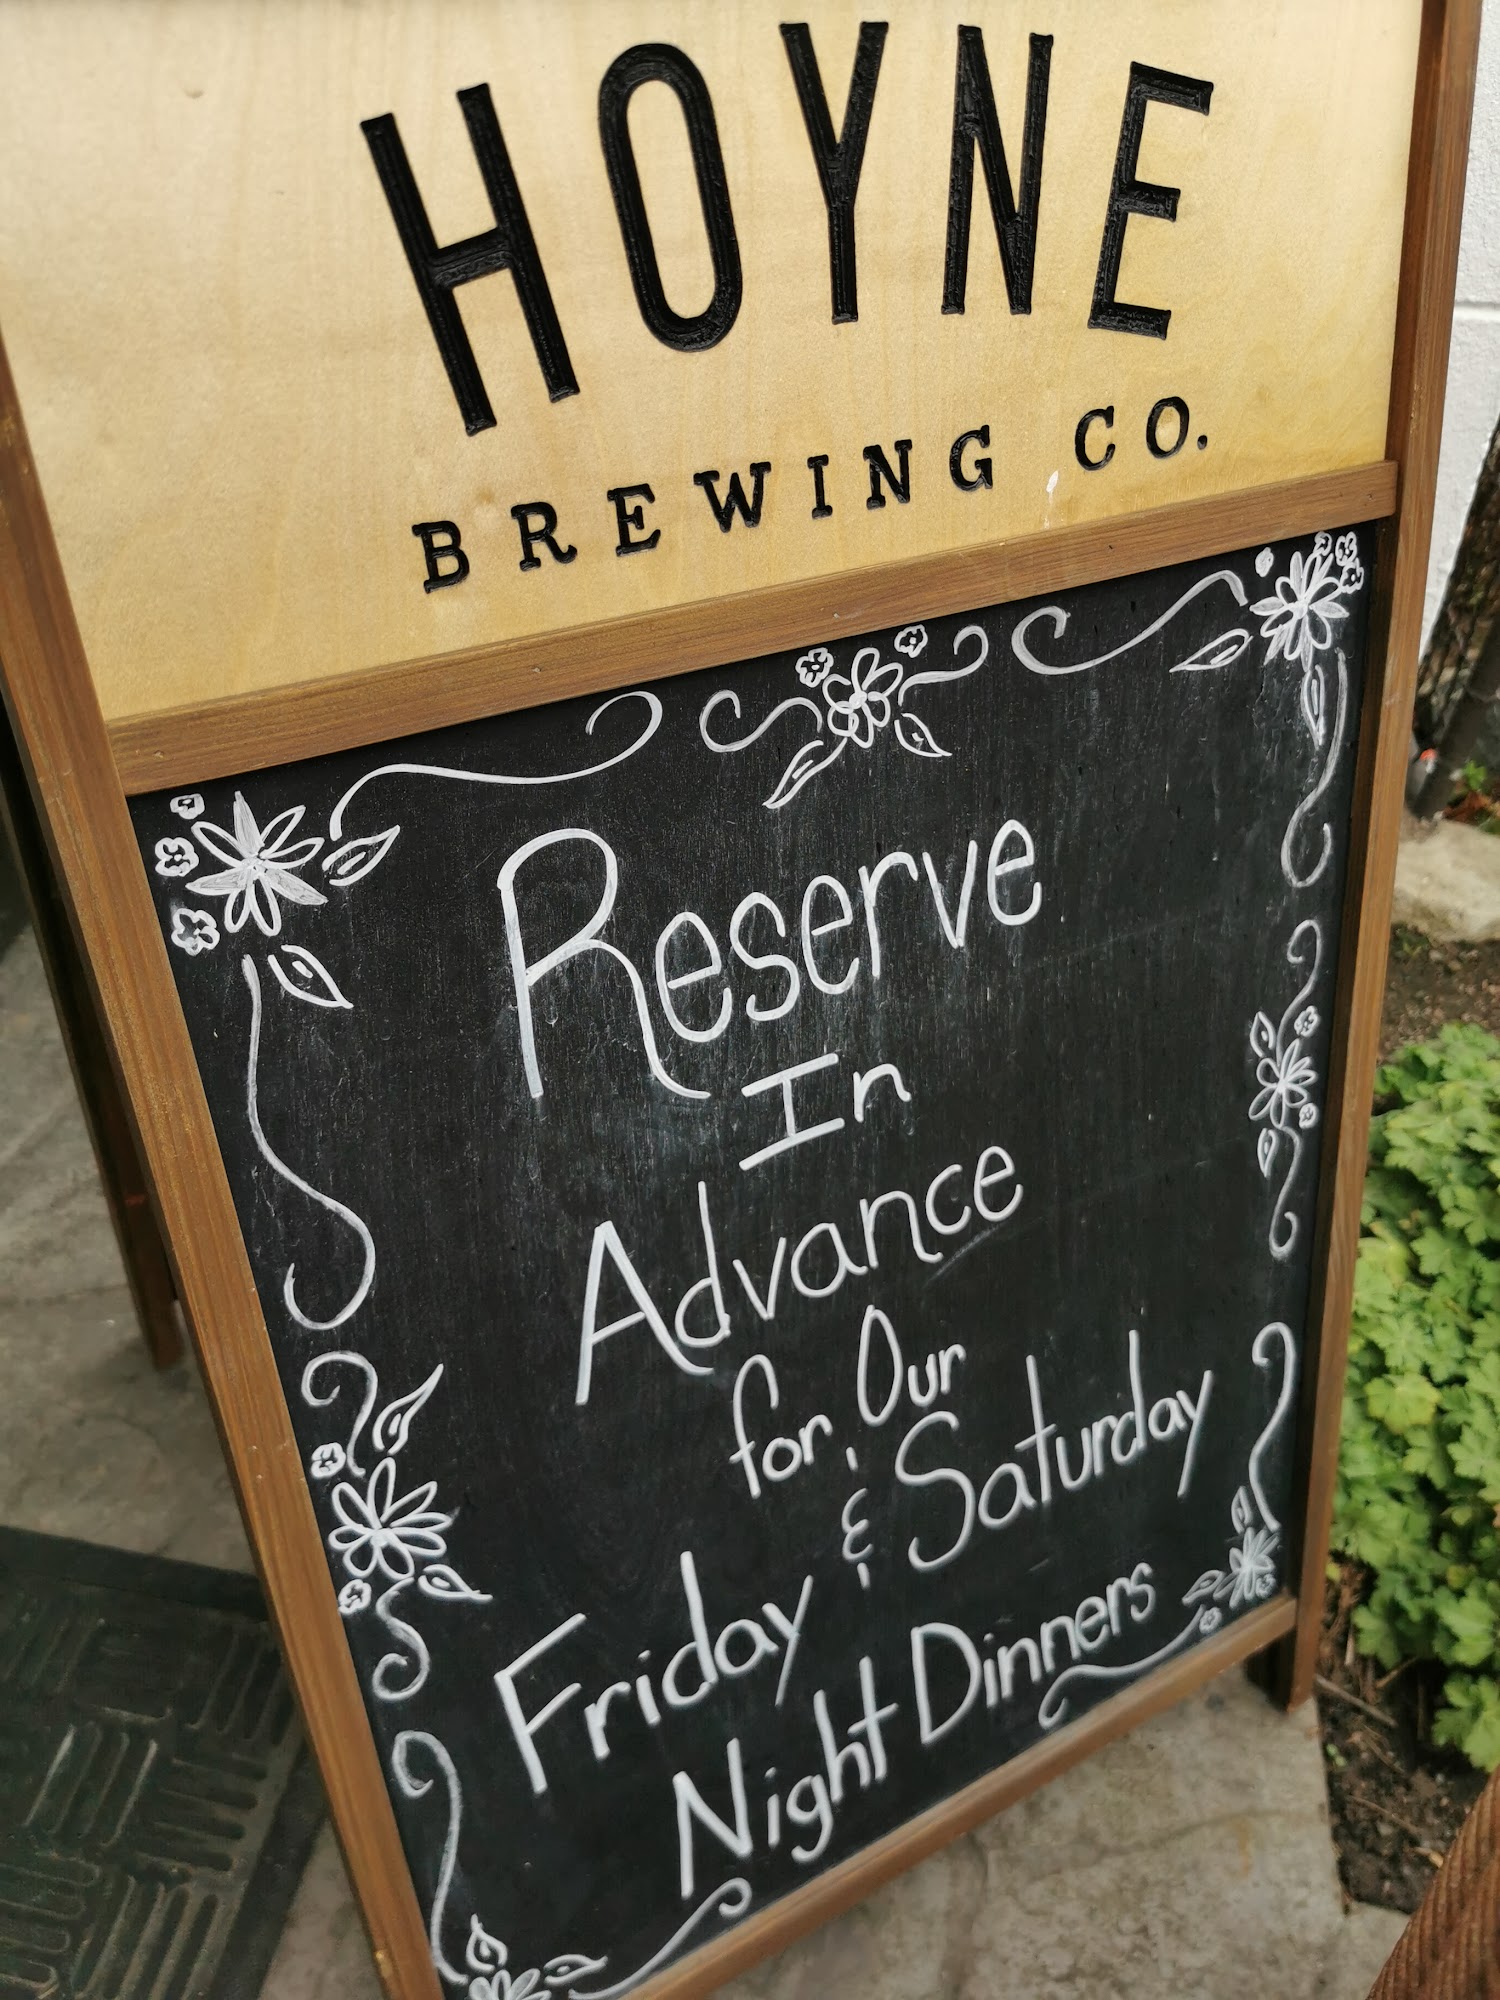 HOYNE
BREWING CO.
Reserve
In
Advance
for Our
Friday & Saturday
Night Dinners